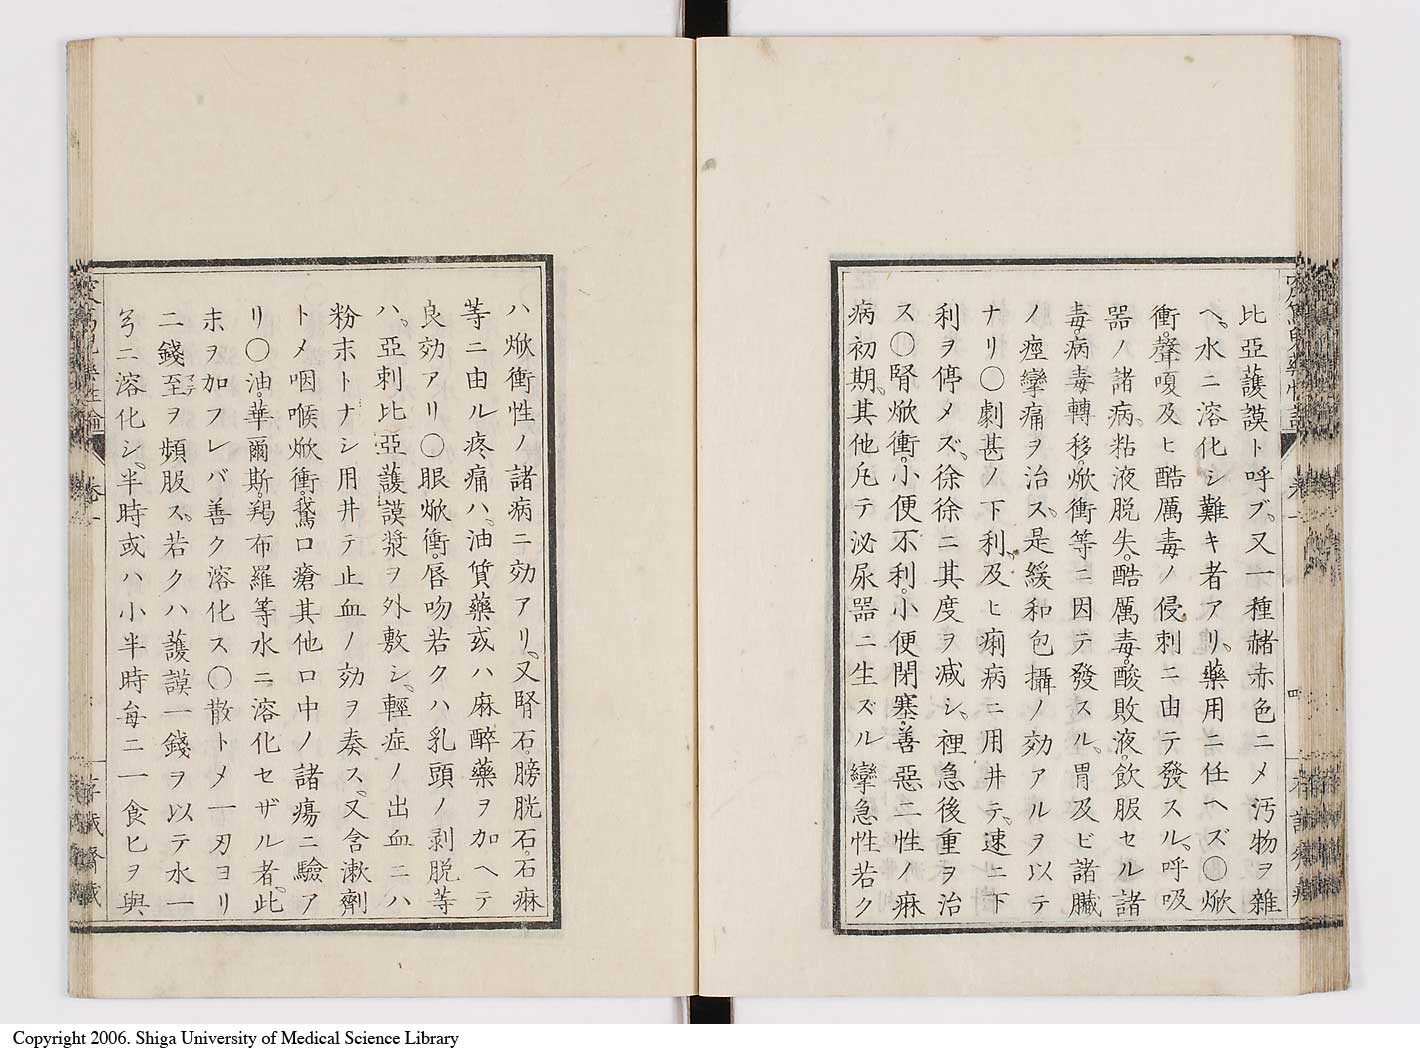 比亞蘐謨ト呼ブ、又一種赭赤色ニメ汚物ヲ雜
ヘ、水ニ溶化シ難キ者アリ、藥用ニ任ヘズ〇焮
衝。聲嗄及ヒ酷厲毒ノ侵刺ニ由テ發スル、呼吸
器ノ諸病、粘液脱失。酷厲毒。酸敗液。飲服セル諸
毒。病毒轉移。焮衝等ニ因テ發スル、胃及ビ諸臟
ノ痙攣痛ヲ治ス、是緩和包攝ノ効アルヲ以テ
ナリ〇劇甚ノ下利、及ヒ痢病ニ用井テ、速ニ下
利ヲ停メズ、徐徐ニ其度ヲ减シ、裡急後重ヲ治
ス〇腎焮衝。小便不利。小便閉塞。善惡二性ノ痳
病初期、其他凡テ泌尿器ニ生ズル攣急性若ク
ハ焮衝性ノ諸病ニ効アリ、又腎石。膀胱石。石痳
等ニ由ル疼痛ハ、油質藥或ハ麻醉藥ヲ加ヘテ
良効アリ〇眼焮衝。唇吻若クハ乳頭ノ剥脱等
ハ、亞刺比亞蘐謨漿ヲ外敷シ、輕症ノ出血ニハ
粉末トナシ用井テ止血ノ効ヲ奏ス、又含漱劑
トメ咽喉焮衝。鵞口瘡其他口中ノ諸瘍ニ驗ア
リ〇油。華爾斯。羯布羅等水ニ溶化セザル者、此
末ヲ加フレバ善ク溶化ス〇散トメ一刃ヨリ
二錢至マデヲ頻服ス、若クハ蘐謨一錢ヲ以テ水一
弯ニ溶化シ、半時或ハ小半時每ニ一食匕ヲ與
Copyright 2006. Shiga University of Medical Science Library